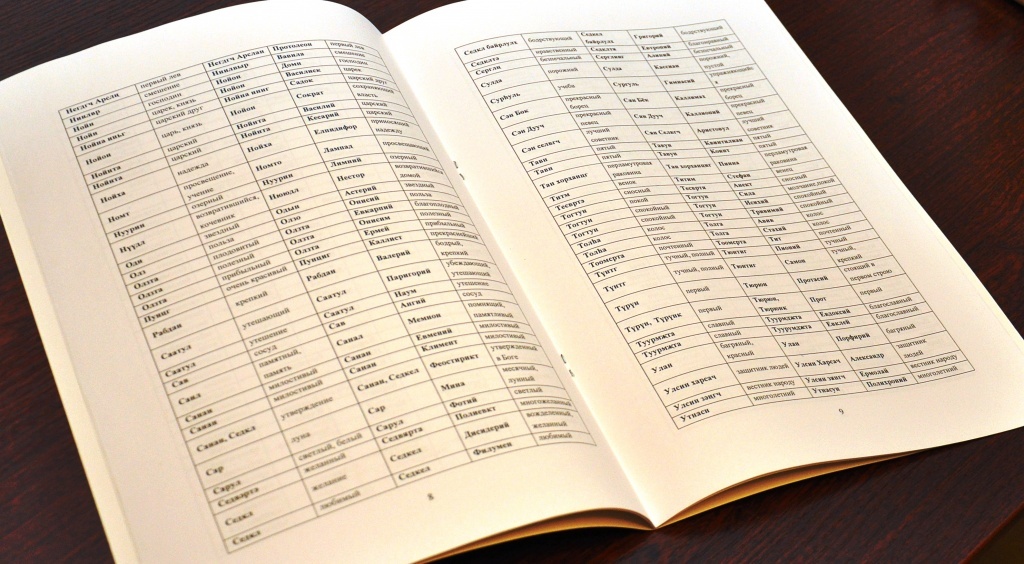 Негдгч Арслн первый лев Негдгч Арслан Протолеон первый лев
смешение Вавила смешение
Нойн господин Нойон Домн господин
Нойн царек, князь Нойон Василиск царек
царский друг Нойна иниг Садок царский друг
Нойон царь, князь Нойон Сократ сохраняющий власть
Нойнта царский Нойнта Василий царский
Нойнта царский Нойнта Кесарий царский
Нойха надежда Нойха Елпидифор приносящий надежду
Номт просвещение, учение Номто Лампад просвещающий
Нуурин озерный Нуурин Лимний озерный
Нүүдл возвратившийся, кочевник Нююдл Нестор возвратившийся домой
Одн звездный Одын Астерий звездный
Олз польза Олзо Онисий польза
Олзта плодовитый Олзта Евкарпий благоплодный
Олзта полезный Олзта Онисим полезный
Олзта прибыльный Олзта Ермей прибыльный
Пүинг очень красивый Пуцинг Каллист прекраснейший
Рабдан крепкий Рабдан Валерий бодрый, крепкий
Саатул утешающий Саатул Паригорий убеждающий утешающий
Саатул утешение Саатул Наум утешение
Сав сосуд Сав Ангий сосуд
Санл памятный, память Санал Мемнон помнящий, памятливый
Санан милостивый Санан Евмений милостивый
Санан милостивый Санан Климент милостивый
Санан, Седкл утверждение Санан, Седкел Феостирикт утвержденный в Боге
Сар луна Сар Мина месячный, лунный
Сарул светлый, белый Сарул Фотий светлый
Седвәртә желанный Седвярта Полиевкт многожеланный
Седкл желание Седкел Дисидерий вожделенный, желанный
Седкл любимый Седкел Филумен любимый
8
Седкл байрлулх бодрствующий Седкел байрлулх Григорий бодрствующий
Седклтә нравственный Седклтя Евтропий благонравный
Серглң беспечальный Серглянг Алипий беспечальный
Сулда порожний Сулда Кастиан порожний, пустой
Сурһуль учеба Сургуль Гимнасий упражняющийся
Сән Бөк прекрасный борец Сян Бёк Каллимах прекрасный борец
Сән Дууч прекрасный певец Сян Дууч Каллиопий прекрасный певец
Сән селвгч лучший советник Сян Селвгч Аристовул лучший советник
Тавн пятый Тавун Квинтилиан пятый
Тавн пятый Тавун Квинт пятый
Тан хорхаинг перламутровая раковина Тан хорхаинг Пинна перламутровая раковина
Титм венок Титим Стефан венец
Тесвртә сносный Тесвртя Анект сносный
Тогтун покой Тогтун Сила молчание, покой
Тогтун спокойный Тогтун Исихий спокойный
Тогтун спокойный Тогтун Транквилл спокойный
Толһа колос Толга Авив колос
Толһа колос Толга Стахий колос
Тоомсртә почтенный Тоомсртя Тит почтенный
Түнтг тучный, полный Тюнтиг Пионий тучный
Түнтг тучный, полный Тюнтиг Самон тучный, крепкий
Түрүн первый Тюрюн Протасий стоящий в первом строю
Түрүн, Түрүнк первый Тюрюн, Тюрюнк Прот первый
Туурмҗта славный Туурмджта Евдоксий благославный
Туурмҗта славный Туурумджта Евклей благославный
Улан багряный, красный Улан Порфирий багряный
Улсин харсач защитник людей Улсин Харсач Александр защитник людей
Улсин зәнгч вестник народу Улсин зянгч Ермолай вестник народу
Утнасн многолетний Утнасун Полихроний многолетний
9